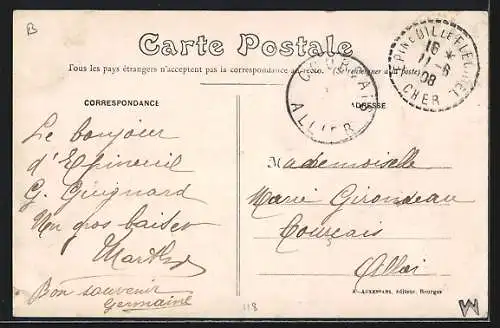 B
Carte Postale
Tous les pays étrangers n'acceptent pas la correspondance au recto. (Se renseigner à la poste)
EPINEUIL LE FLEURIEL
16 *
11 - 6
08
CHER
COURÇAIS
ALLIER
CORRESPONDANCE
ADRESSE
Le bonjour
d'Epineuil
G. Guignard
Un gros baiser
Marthe
Bon souvenir
Germaine
Mademoiselle
Marie Girondeau
Courçais
Allier
A. AUXENFANS, éditeur, Bourges
118